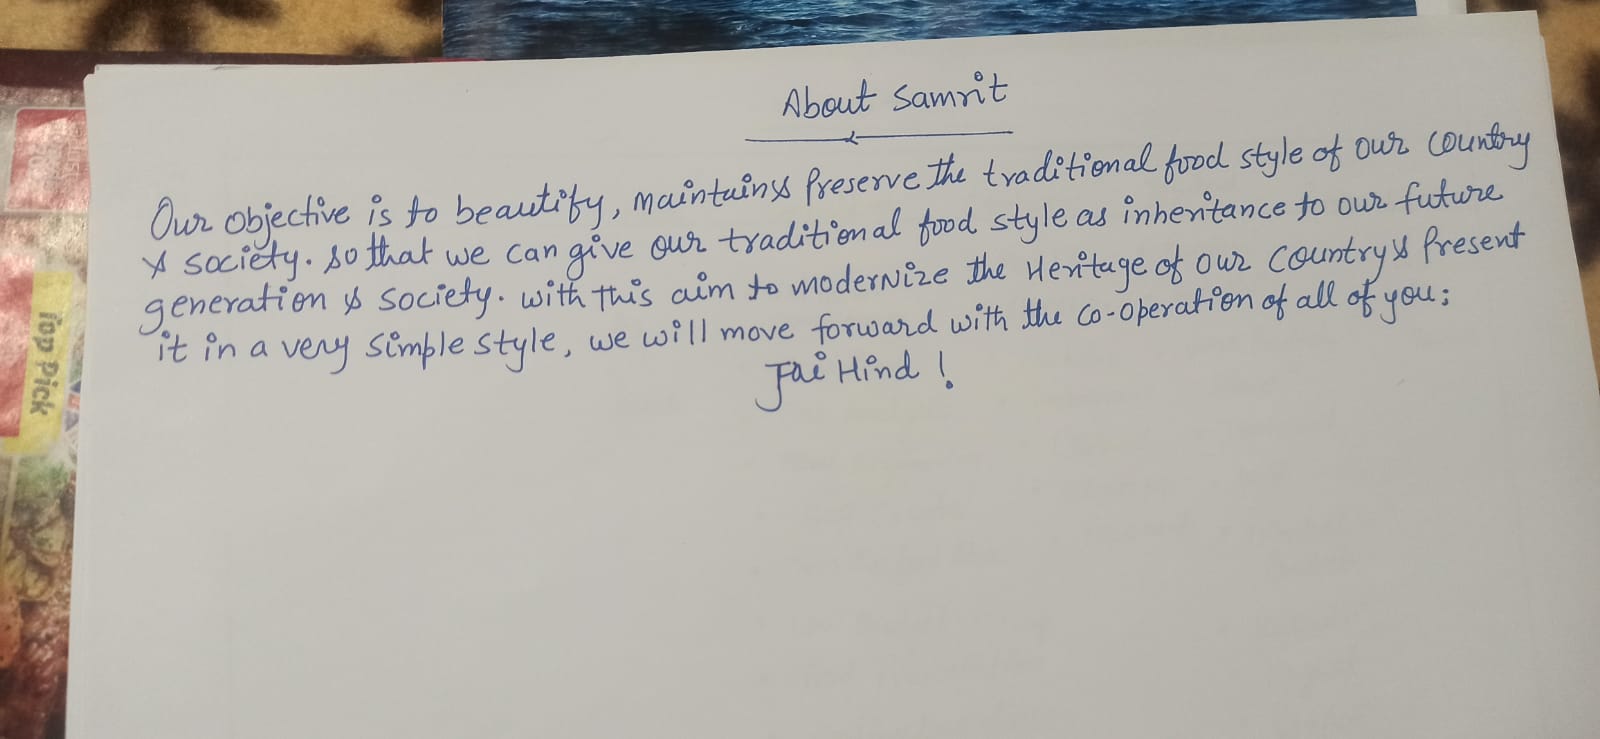 About Samrit
Our objective is to beautify, maintain & Preserve the traditional food style of our country
& society. so that we can give our traditional food style as inheritance to our future
generation & society. with this aim to modernize the Heritage of our country & Present
it in a very simple style, we will move forward with the co-operation of all of you;
Jai Hind !
Top Pick